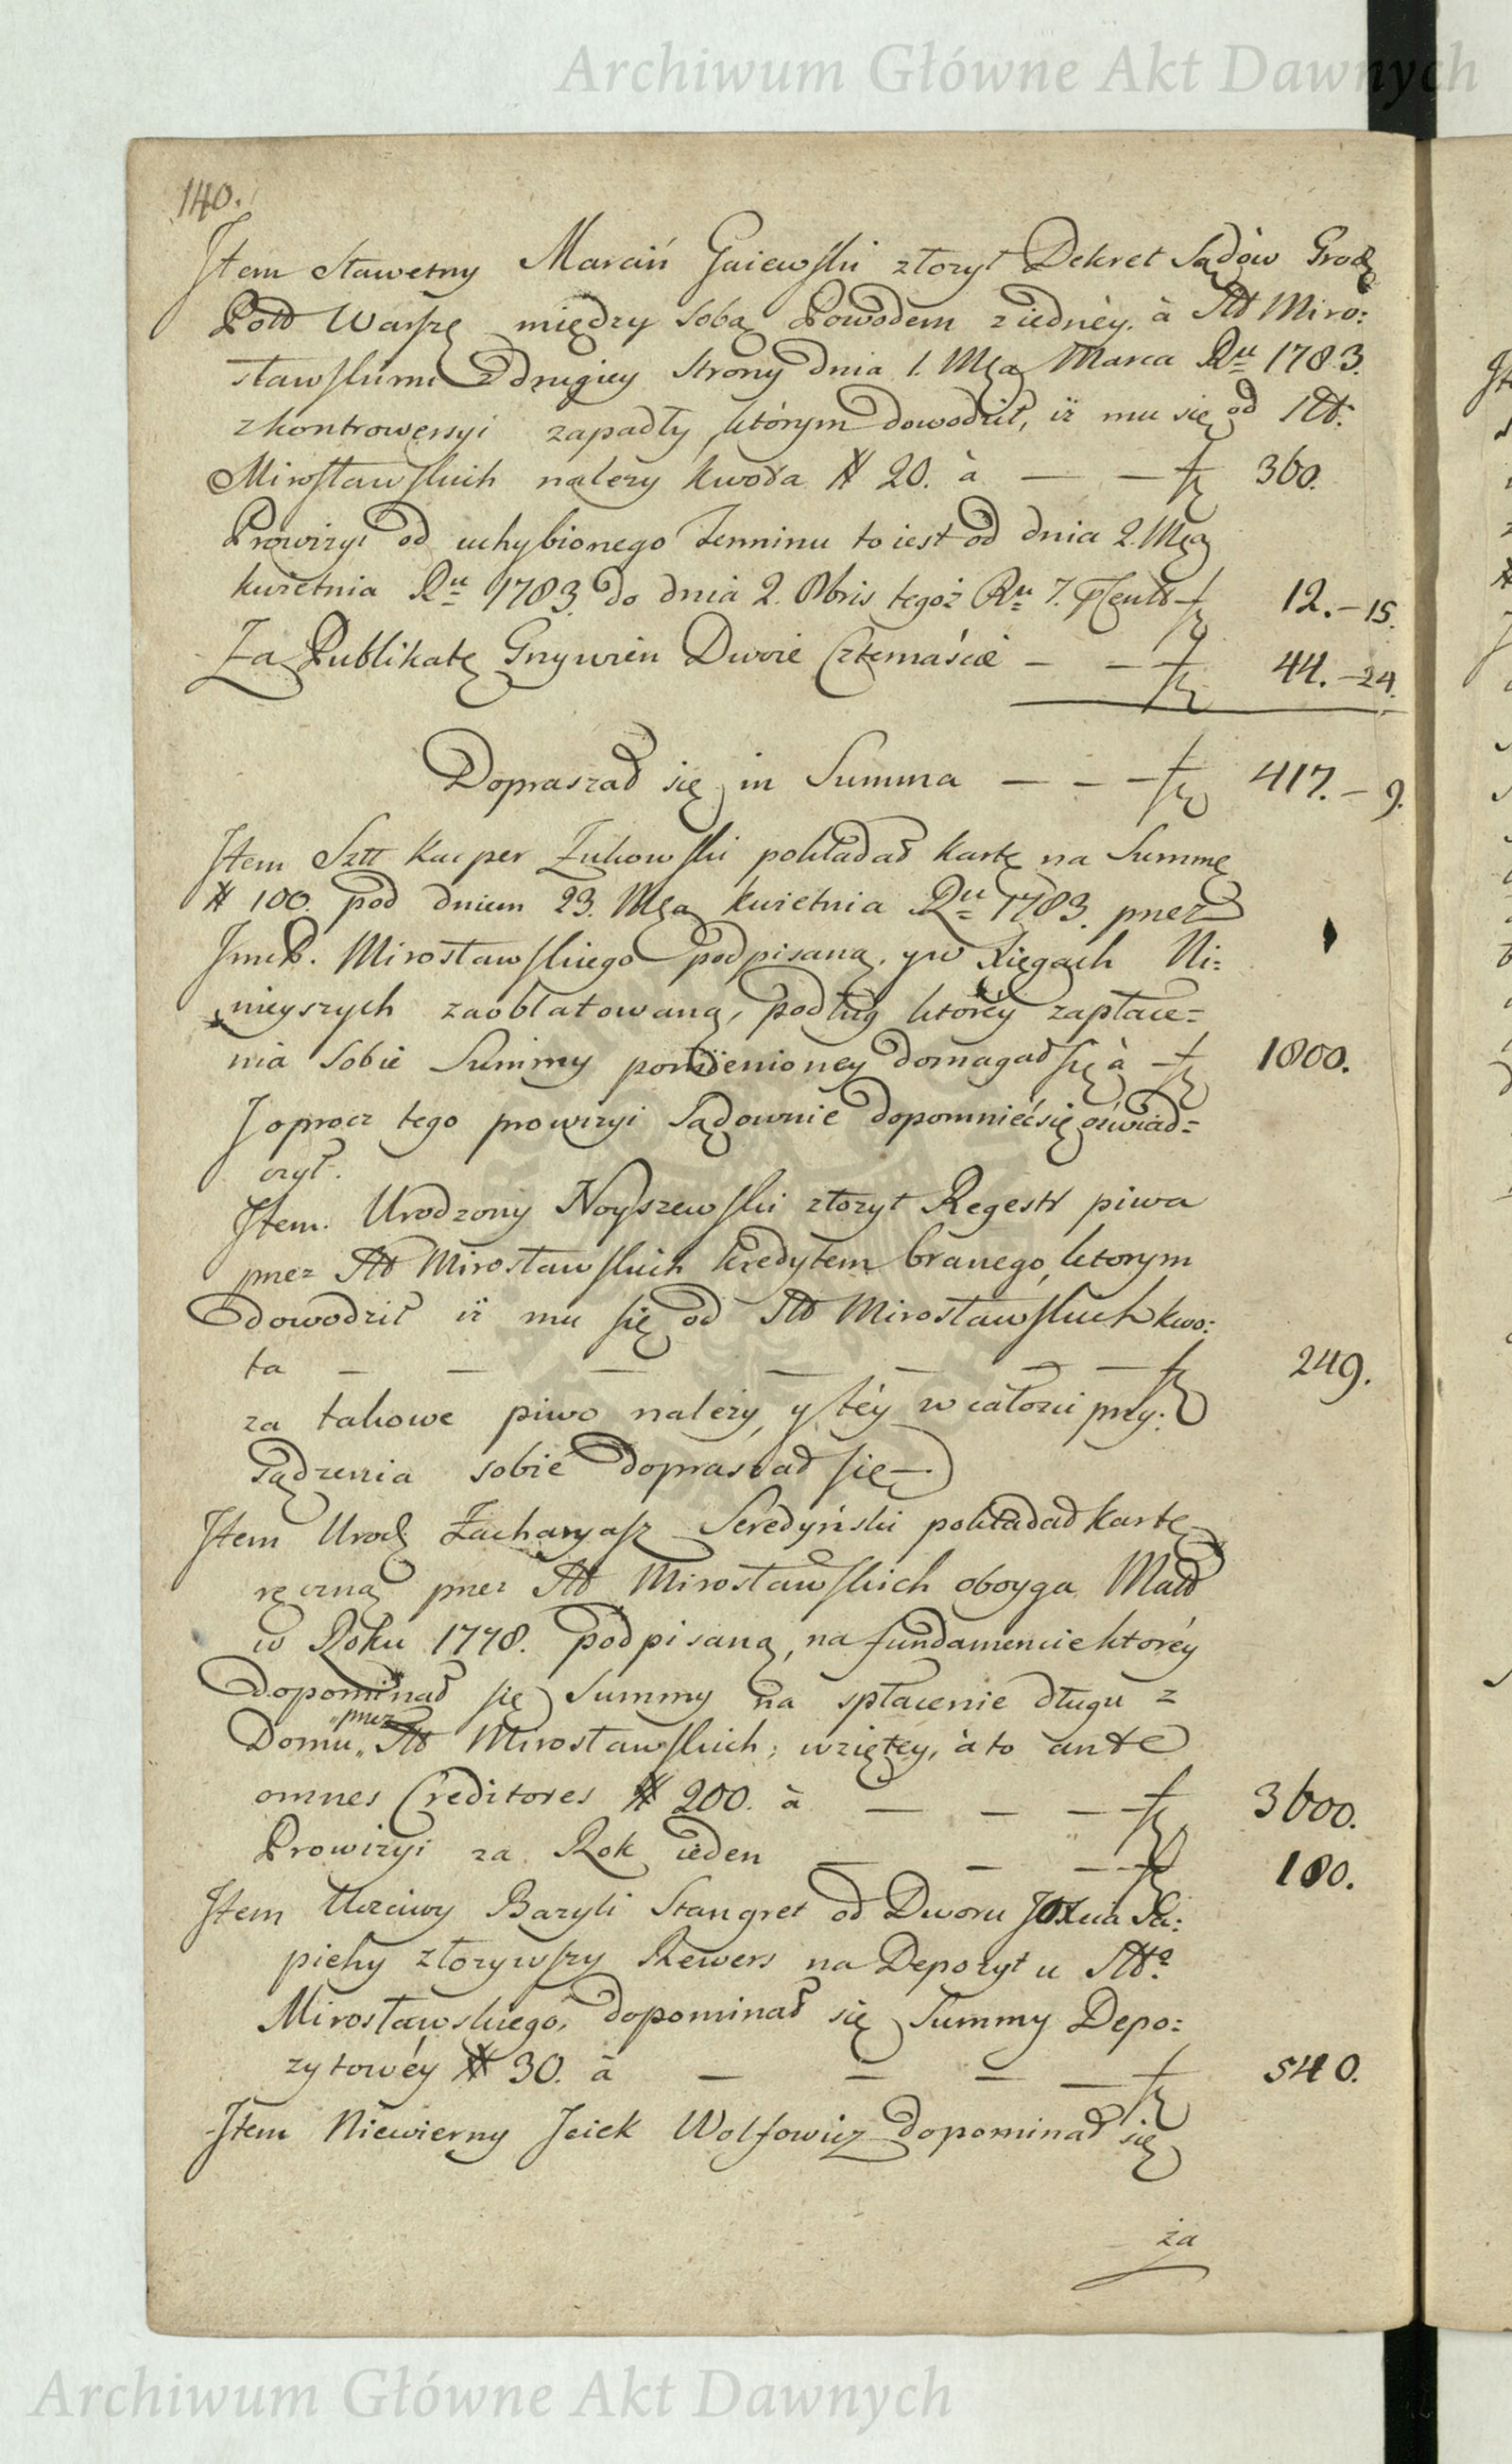 Archiwum Główne Akt Dawnych
140.
Item Sławetny Marcin Gaiewski złożył Dekret Sądów Grodz
Potł Warszę między Sobą Powodem z iedney. à Miro:
sławskiemi z drugiey Strony dnia 1. Mça Marca Ru 1783.
z kontrowersyi zapadły, którym dowodził, iż mu się od
Mirosławskich należy kwota # 20. à — — fz 360.
Prowizyi od uchybionego Terminu to iest od dnia 2. Mça
kwietnia Ru 1783. do dnia 2. 8bris tegoż Ru 7. fz 12.—15.
Za Publikatę Grzywien Dwoie Czternaście — — fz 44.—24.
Dopraszał się in Summa — — — fz 417.—9.
Item Kacper Żukowski pokładał kartę na Summę
# 100. pod dniem 23. Mça kwietnia Ru 1783. przez
Mirosławskiego podpisaną, y w Xięgach Ni:
nieyszych zaoblatowaną, podług którey zapłace=
nia Sobie Summy pomienioney domagał się à — fz 1800.
J oprocz tego prowizyi Sądownie dopomnieć się oświad=
czył.
Item. Urodzony Noyszewski złożył Regestr piwa
przez Mirosławskich kredytem branego, ktorym
dowodził iż mu się od Mirosławskich kwo:
ta — — — — — — — fz 249.
za takowe piwo należy, y téy w całości przy:
sądzenia sobie dopraszał się —.
Item Urodz Zacharyasz Seredyński pokładał kartę
ręczną przez Mirosławskich oboyga Małż
w Roku 1778. podpisaną, na fundamencie ktoréy
dopominał się Summy na spłacenie długu z
Domu „przez Mirosławskich, wziętey, à to ante
omnes Creditores # 200. à — — — fz 3600.
Prowizyi za Rok ieden — — — fz 180.
Item Uczciwy Bazyli Stangret od Dworu Sa:
piehy złożywszy Rewers na Depozyt u
Mirosławskiego, dopominał się Summy Depo:
zytowéy # 30. à — — — — fz 540.
Item Niewierny Jcick Wolfowicz dopominał się
za
Archiwum Główne Akt Dawnych